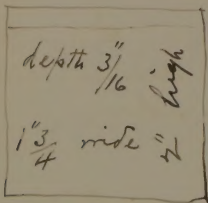 depth 3/16"
1"3/4 wide
2" high